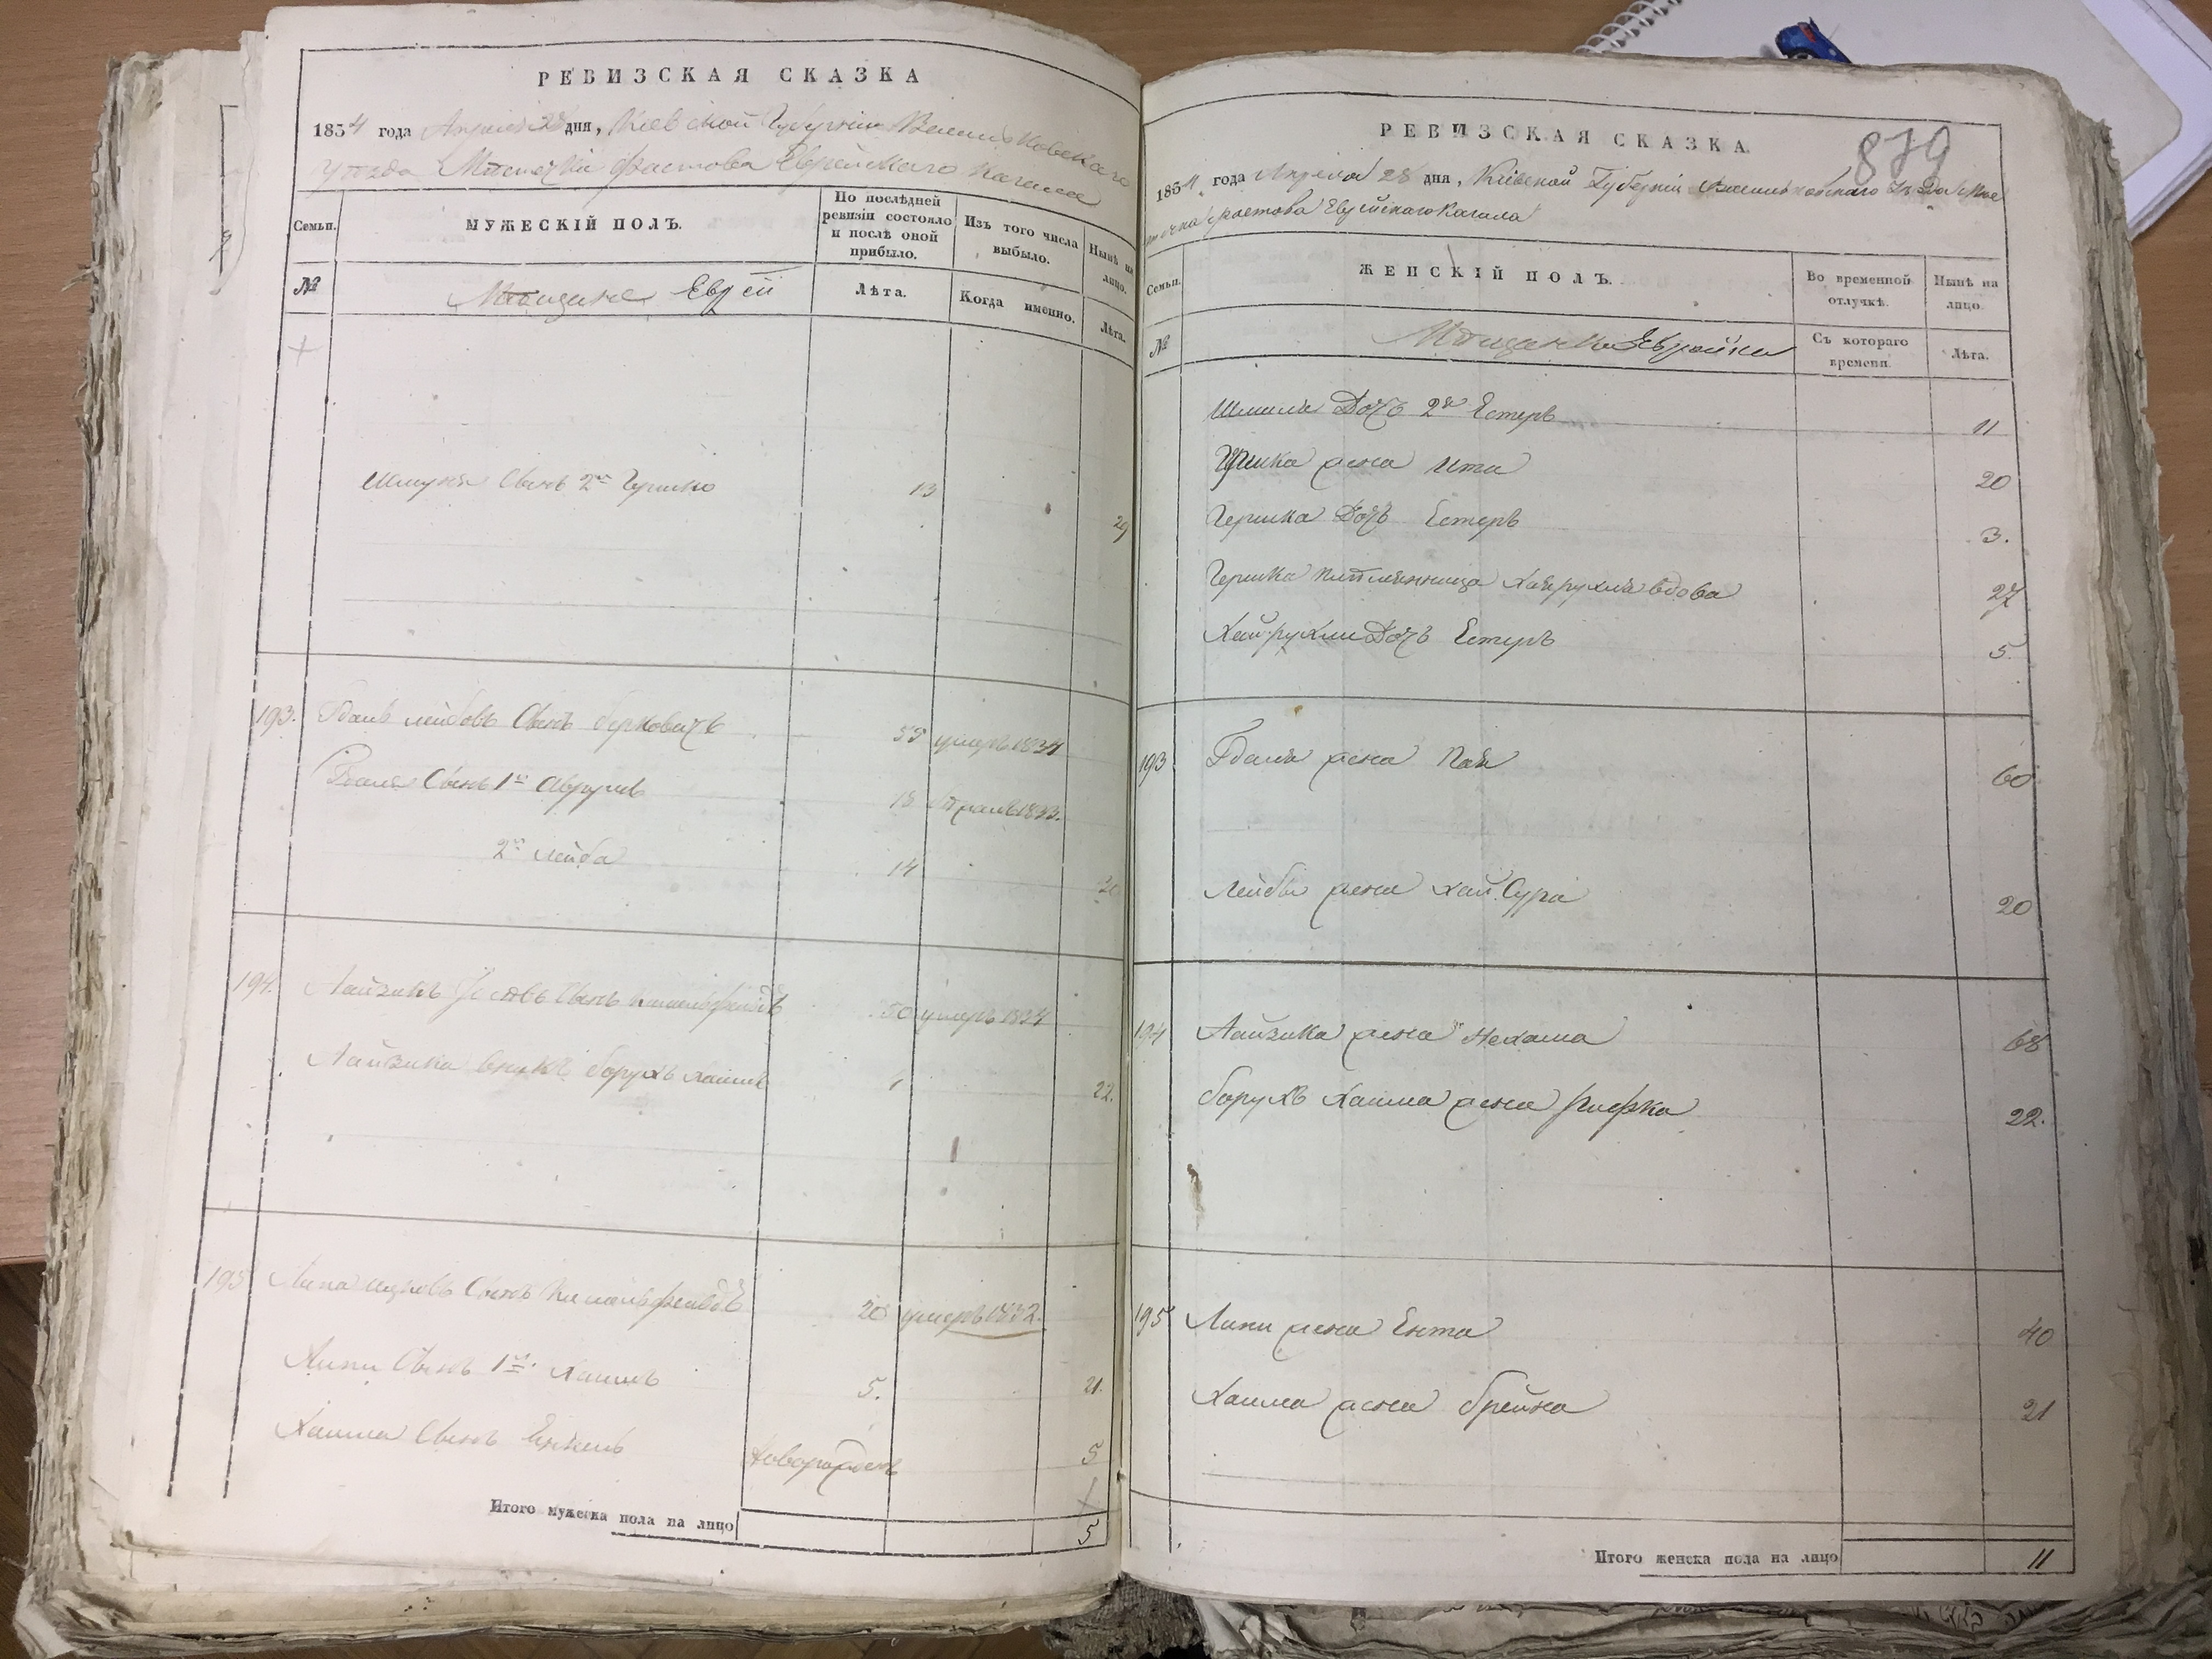 РЕВИЗСКАЯ СКАЗКА
1834 года Апреля 28 дня, Киевской Губернии Васильковскаго
уѣзда Мѣстечка Фастова Еврейскаго Кагала
Семьи.
МУЖЕСКІЙ ПОЛЪ.
По послѣдней ревизіи состояло и послѣ оной прибыло.
Изъ того числа выбыло.
Нынѣ на лицо.
№
Мѣщане Евреи
Лѣта.
Когда именно.
Лѣта.
Шмуля Сынъ 2й Гершко 13 29
193. Лейбовъ Сынъ Берковичъ 55 умеръ 1834
Сынъ 1й 18 1833.
2й Лейба 14
194. Лайзикъ Сынъ 50 умеръ 1824
Лайзика внукъ Борухъ Хаимъ 22.
195 Липа Ицковъ Сынъ 20 умеръ 1832.
Липи Сынъ 1й Хаимъ 5. 21.
Хаима Сынъ Новорожденъ 5
Итого мужеска пола на лицо 5
879
РЕВИЗСКАЯ СКАЗКА
1834 года Апреля 28 дня, Кіевской Губерніи Васильковскаго уѣзда Мѣс
течка Фастова Еврейскаго Кагала
Семьи.
ЖЕНСКІЙ ПОЛЪ.
Во временной отлучкѣ.
Нынѣ на лицо.
№
Мѣщанки Еврейки
Съ котораго времени.
Лѣта.
Шмуля Дочь 2я Естеръ 11
Гершка жена Ита 20
Гершка Дочь Естеръ 3.
Гершка племянница Хайрухля вдова 27
Хайрухли Дочь Естеръ 5.
193 жена 60
Лейбы жена Хай Сура 20
194 Лайзика жена Нехама 68
Борухъ Хаима жена Рифка 22.
195 Липи жена Ента 40
Хаима жена Брейна 21
Итого женска пола на лицо 11